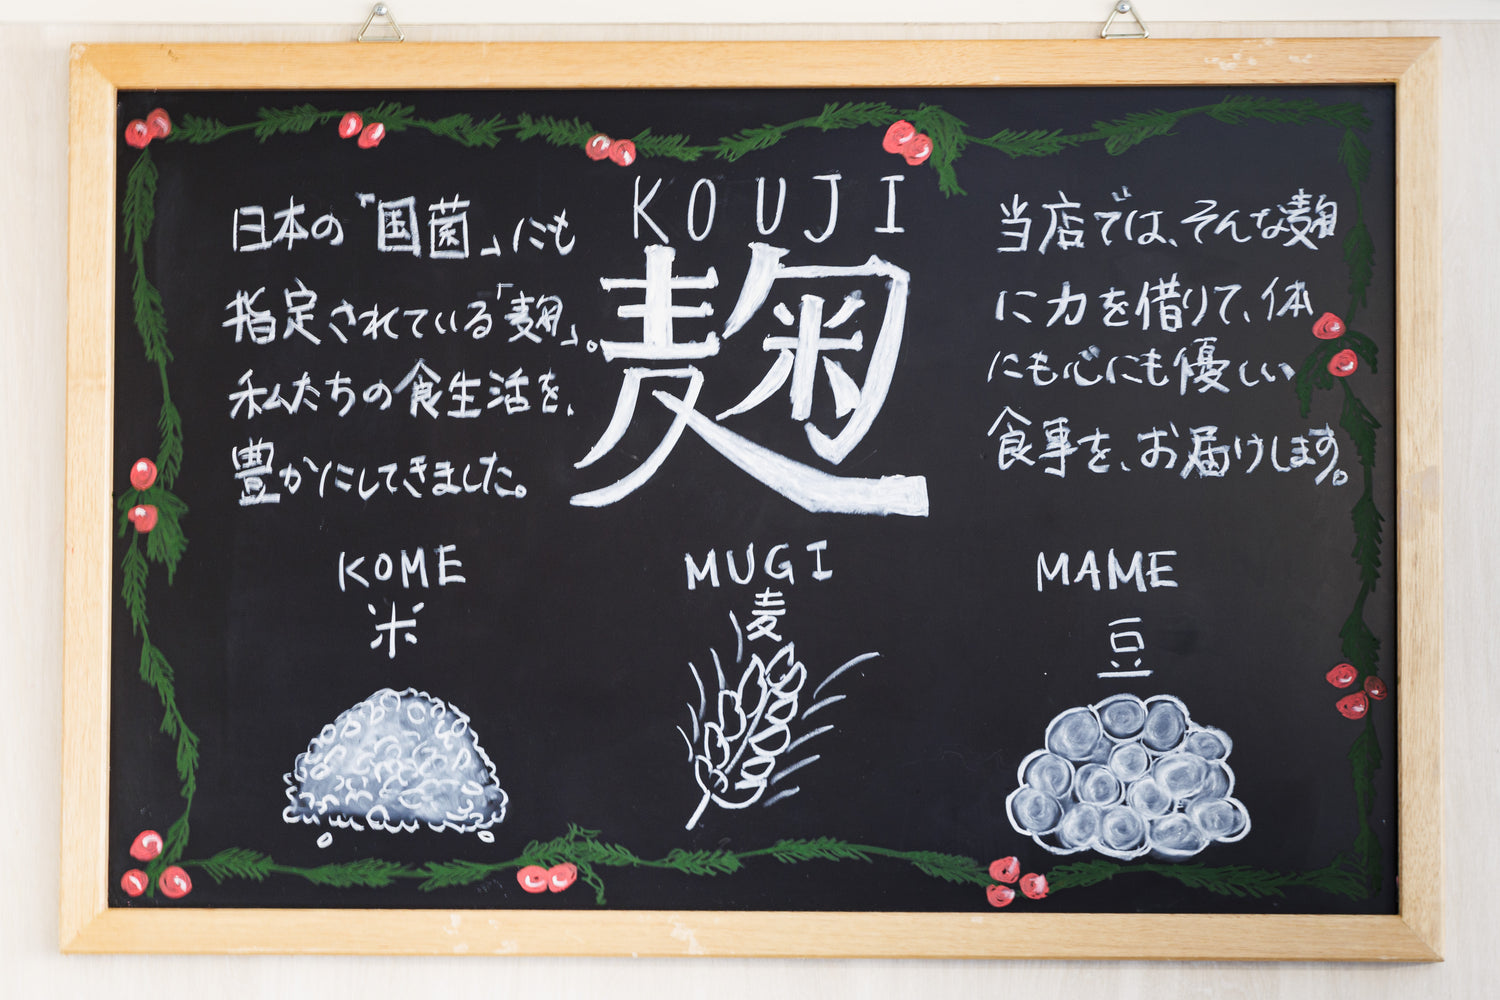 日本の「国菌」にも
指定されている「麹」。
私たちの食生活を、
豊かにしてきました。
KOUJI
麹
当店では、そんな麹
に力を借りて、体
にも心にも優しい
食事を、お届けします。
KOME
米
MUGI
麦
MAME
豆